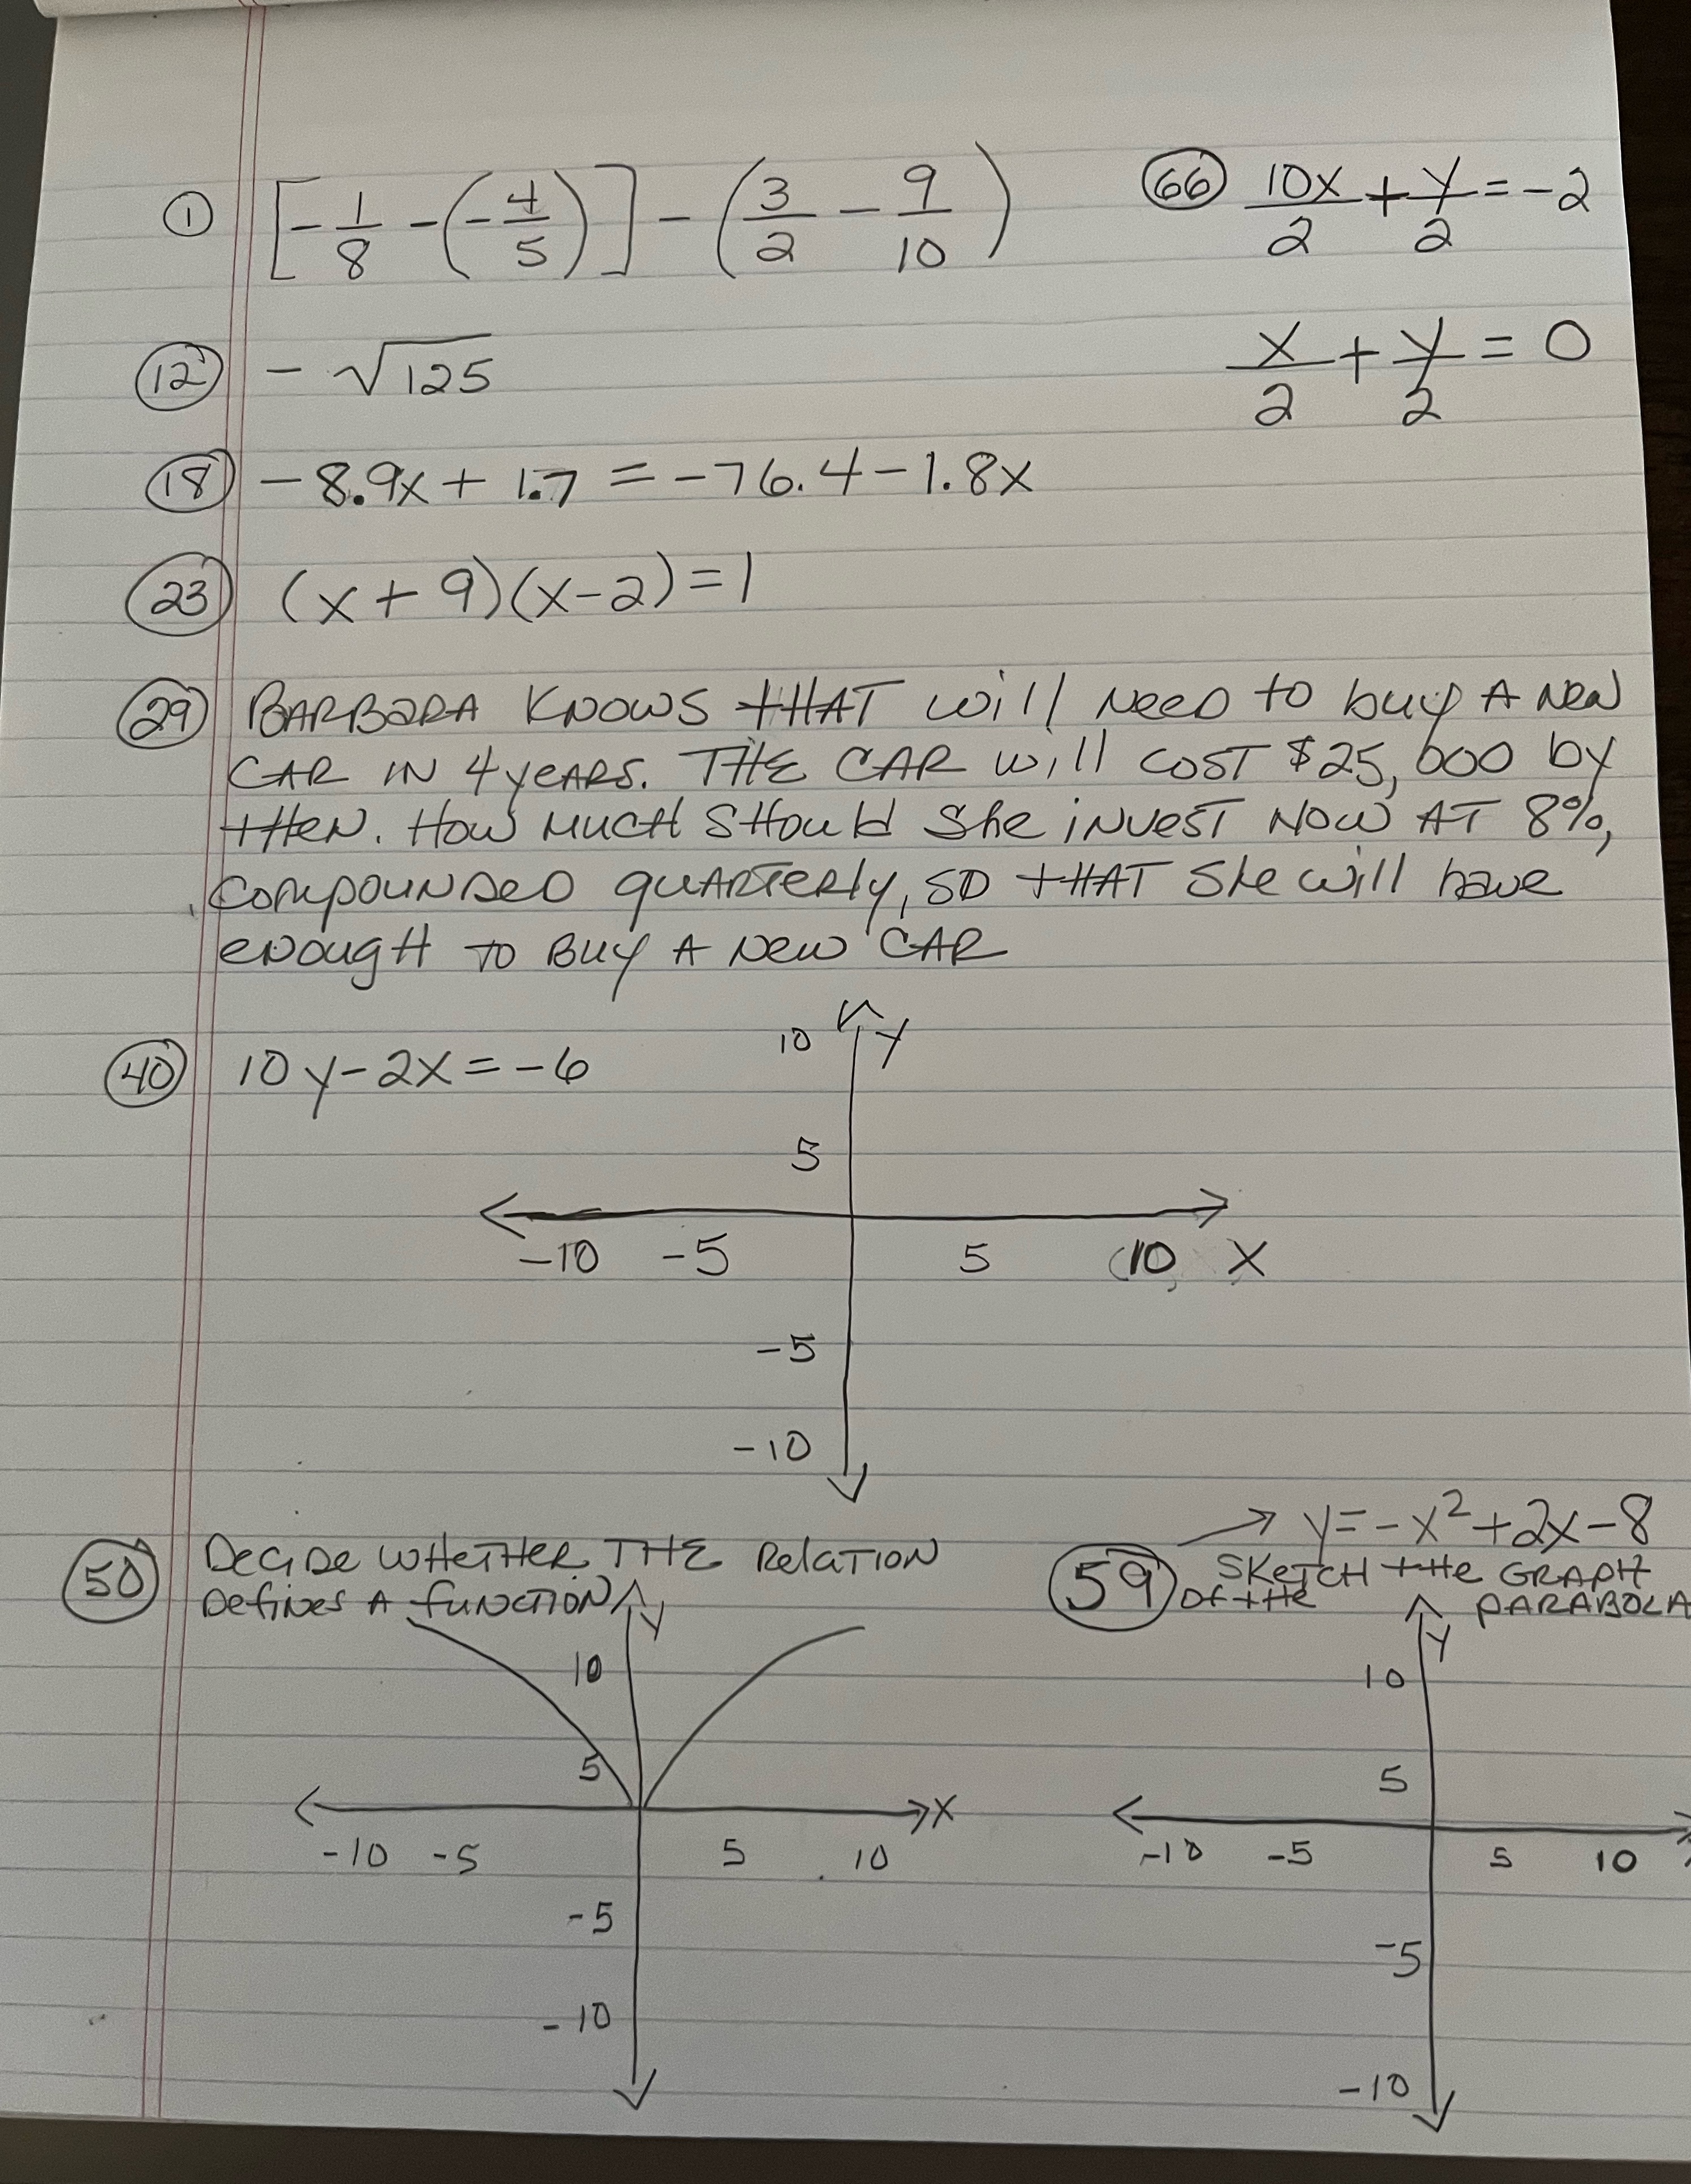 ① [-1/8 - (-4/5)] - (3/2 - 9/10)
⑫ - √125
⑱ -8.9x + 1.7 = -76.4 - 1.8x
㉓ (x + 9)(x - 2) = 1
㉙ BARBARA KNOWS THAT will NEED to buy A NEW
CAR IN 4 yEARS. THE CAR will COST $25,000 by
tHEN. HOW MUCH SHOULD She iNVEST NOW AT 8%,
COMPOUNDED QUARTERly, SO tHAT She will have
ENOUgH TO BUY A NEW CAR
㊵ 10y - 2x = -6
y
10
5
-10 -5 5 10 X
-5
-10
㊿ DeciDe WHETHER THE RElATION
DefiNes A fUNCTION
y
10
5
X
-10 -5 5 10
-5
-10
(59) y = -x² + 2x - 8
SKETCH tHe GRAPH
Of tHe PARABOLA
y
10
5
-10 -5 5 10
-5
-10
(66) 10x/2 + y/2 = -2
x/2 + y/2 = 0